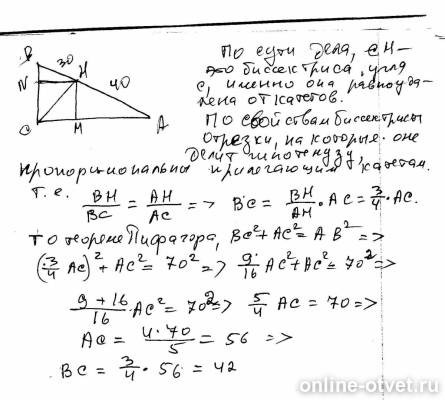 B
30
N
H
40
C
M
A
По сути дела, CH-
это биссектриса угла
C, именно она равноуда-
лена от катетов.
По свойствам биссектрисы
отрезки, на которые она
делит гипотенузу,
пропорциональны прилегающим катетам.
Т.е. BH/BC = AH/AC => BC = BH/AH · AC = 3/4 · AC.
По теореме Пифагора, BC² + AC² = AB² =>
(3/4 AC)² + AC² = 70² => 9/16 AC² + AC² = 70² =>
9+16/16 AC² = 70² => 5/4 AC = 70 =>
AC = 4·70/5 = 56 =>
BC = 3/4 · 56 = 42
online-otvet.ru